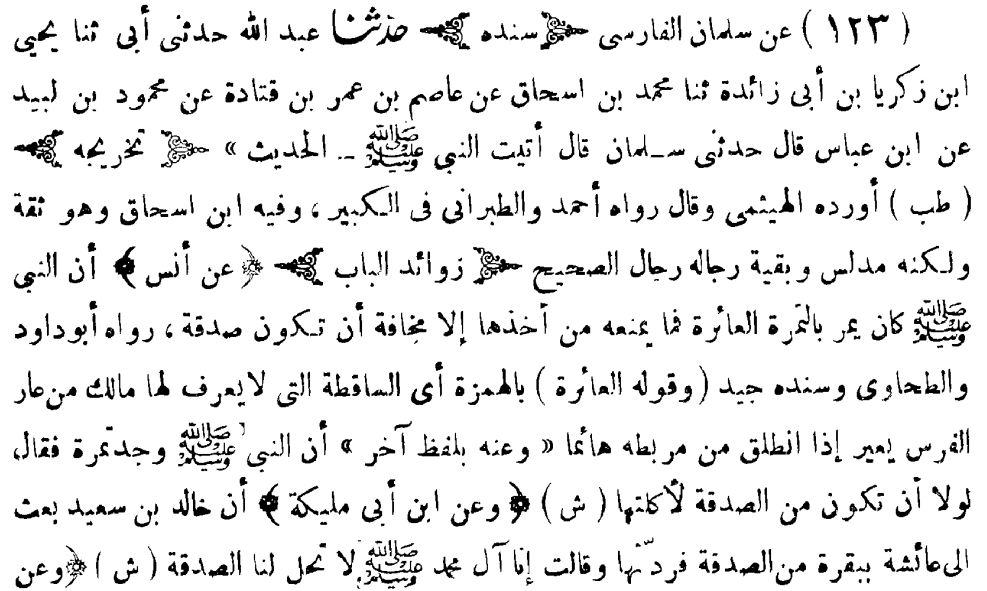 ( ١٢٣ ) عن سلمان الفارسى ﴿ سنده ﴾ حدثنا عبد الله حدثنى أبى ثنا يحيى
ابن زكريا بن أبى زائدة ثنا محمد بن اسحاق عن عاصم بن عمر بن قتادة عن محمود بن لبيد
عن ابن عباس قال حدثنى سلمان قال أتيت النبي ﷺ ــ الحديث » ﴿ تخريجه ﴾
( طب ) أورده الهيثمى وقال رواه أحمد والطبرانى فى الكبير ، وفيه ابن اسحاق وهو ثقة
ولكنه مدلس وبقية رجاله رجال الصحيح ﴿ زوائد الباب ﴾ ﴿ عن أنس ﴾ أن النبي
ﷺ كان يمر بالتمرة العائرة فما يمنعه من أخذها إلا مخافة أن تكون صدقة ، رواه أبوداود
والطحاوى وسنده جيد ( وقوله العائرة ) بالهمزة أى الساقطة التى لايعرف لها مالك من عار
الفرس يعير إذا انطلق من مربطه هائما « وعنه بلفظ آخر » أن النبي ﷺ وجدتمرة فقال
لولا أن تكون من الصدقة لأكلتها ( ش ) ﴿ وعن ابن أبى مليكة ﴾ أن خالد بن سعيد بعث
الى عائشة ببقرة من الصدقة فردّتها وقالت إنا آل محمد ﷺ لا تحل لنا الصدقة ( ش ) ﴿ وعن